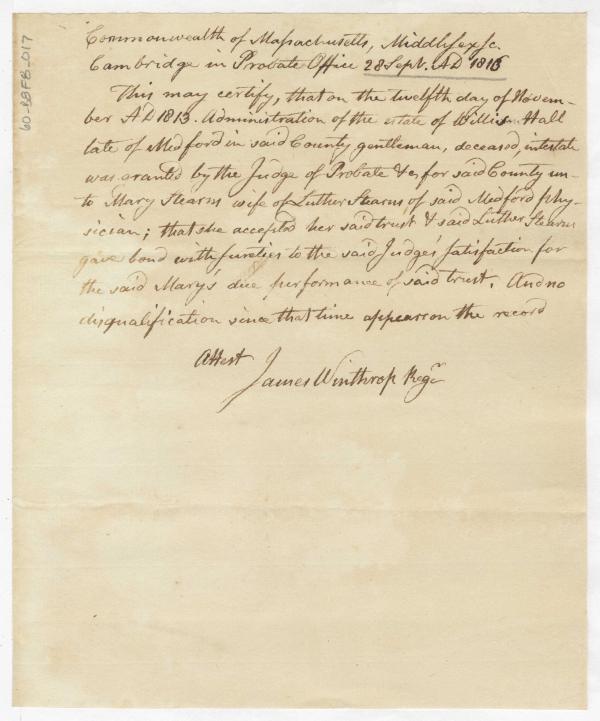 60-BBFB-017
Commonwealth of Massachusetts, Middlesex Sc.
Cambridge in Probate Office 28 Sept. AD 1816
This may certify, that on the twelfth day of Novem-
ber AD 1813. Administration of the estate of Willis Hall
late of Medford in said County, gentleman, deceased, intestate
was granted by the Judge of Probate &c, for said County un-
to Mary Stearns wife of Luther Stearns of said Medford phy-
sician; that she accepted her said trust & said Luther Stearns
gave bond with sureties to the said Judge's satisfaction for
the said Mary's due performance of said trust. And no
disqualification since that time appears on the record
Attest
James Winthrop Regr